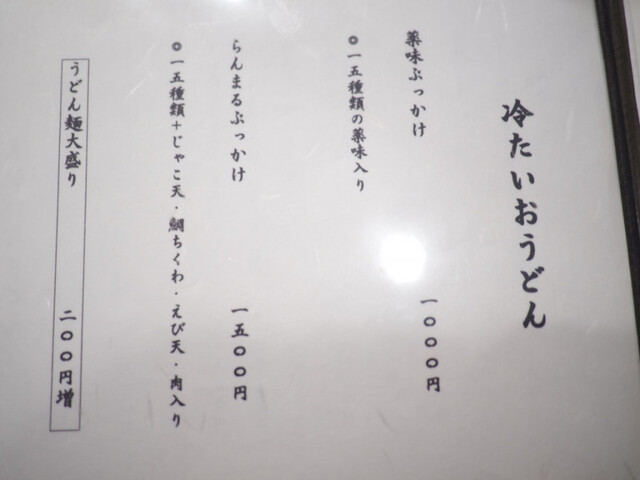 冷たいおうどん
薬味ぶっかけ 一〇〇〇円
◎一五種類の薬味入り
らんまるぶっかけ 一五〇〇円
◎一五種類+じゃこ天・鯛ちくわ・えび天・肉入り
うどん麺大盛り 二〇〇円増